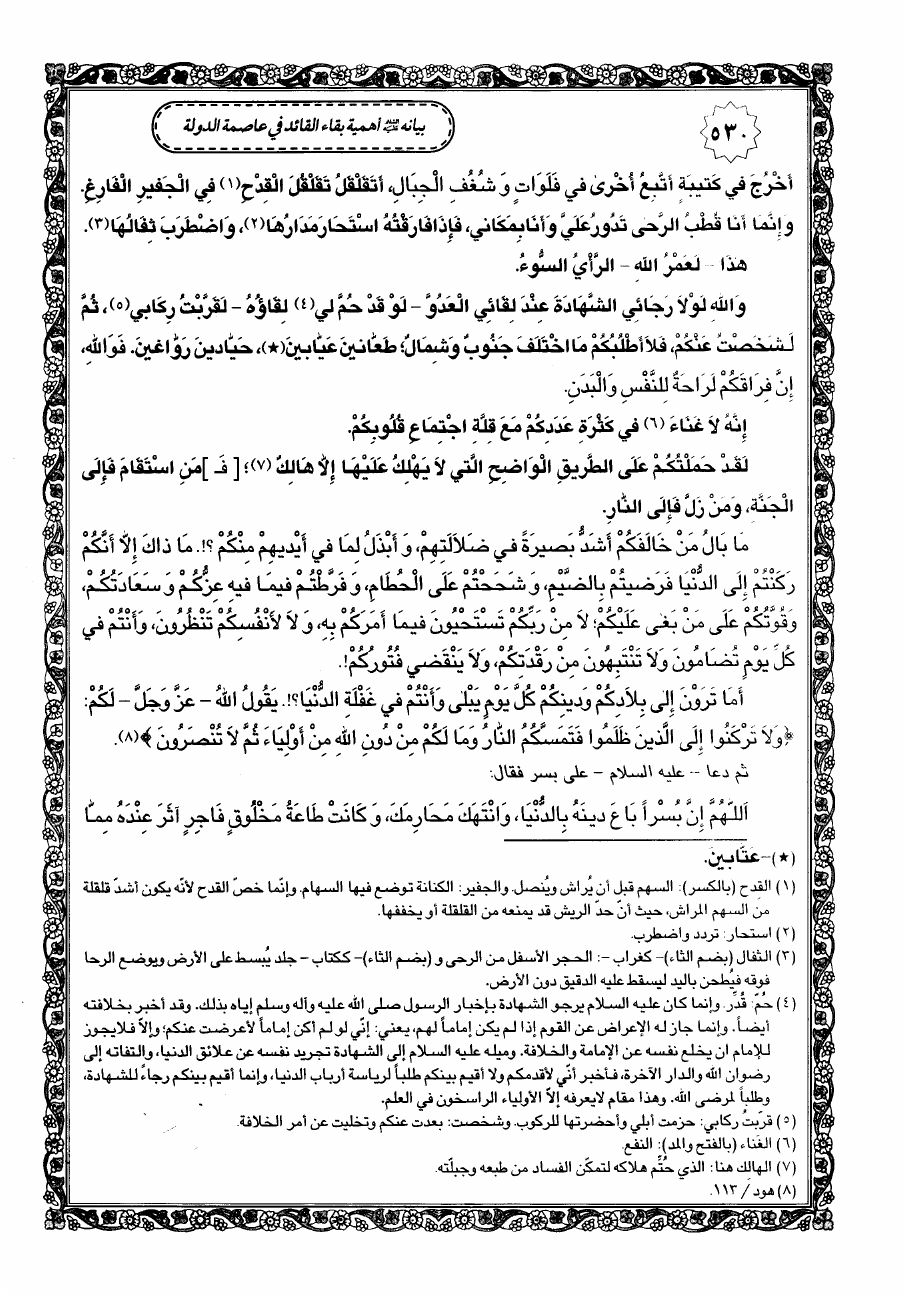 ٥٣٠
بيانه عليه السلام أهمية بقاء القائد في عاصمة الدولة
أَخْرُجَ في كَتيبَةٍ أَتَّبِعُ أُخْرىٰ في فَلَوَاتٍ وَ شُغُفِ الْجِبَالِ، أَتَقَلْقَلُ تَقَلْقُلَ الْقِدْحِ(١) فِي الْجَفيرِ الْفَارِغِ.
وَ إِنَّمَا أَنَا قُطْبُ الرَّحٰى تَدُورُ عَلَيَّ وَ أَنَا بِمَكَاني، فَإِذَا فَارَقْتُهُ اسْتَحَارَ مَدَارُهَا(٢)، وَ اضْطَرَبَ ثِفَالُهَا(٣).
هٰذَا – لَعَمْرُ اللهِ – الرَّأْيُ السُّوءُ.
وَ اللهِ لَوْلاَ رَجَائِي الشَّهَادَةَ عِنْدَ لِقَائِي الْعَدُوَّ – لَوْ قَدْ حُمَّ لي(٤) لِقَاؤُهُ – لَقَرَّبْتُ رِكَابي(٥)، ثُمَّ
لَشَخَصْتُ عَنْكُمْ، فَلاَ أَطْلُبُكُمْ مَا اخْتَلَفَ جَنُوبٌ وَ شَمَالٌ؛ طَعّانينَ عَيّابينَ(★)، حَيّادينَ رَوّاغينَ. فَوَ اللهِ،
إِنَّ فِرَاقَكُمْ لَرَاحَةٌ لِلنَّفْسِ وَ الْبَدَنِ.
إِنَّهُ لاَ غَنَاءَ (٦) في كَثْرَةِ عَدَدِكُمْ مَعَ قِلَّةِ اجْتِمَاعِ قُلُوبِكُمْ.
لَقَدْ حَمَلْتُكُمْ عَلَى الطَّريقِ الْوَاضِحِ الَّتي لاَ يَهْلِكُ عَلَيْهَا إِلاَّ هَالِكٌ (٧)؛ [ فَـ ]مَنِ اسْتَقَامَ فَإِلَى
الْجَنَّةِ، وَ مَنْ زَلَّ فَإِلَى النَّارِ.
مَا بَالُ مَنْ خَالَفَكُمْ أَشَدُّ بَصيرَةً في ضَلاَلَتِهِمْ، وَ أَبْذَلُ لِمَا في أَيْديهِمْ مِنْكُمْ ؟!. مَا ذَاكَ إِلاَّ أَنَّكُمْ
رَكَنْتُمْ إِلَى الدُّنْيَا فَرَضيتُمْ بِالضَّيْمِ، وَ شَحَحْتُمْ عَلَى الْحُطَامِ، وَ فَرَّطْتُمْ فيمَا فيهِ عِزُّكُمْ وَ سَعَادَتُكُمْ،
وَ قُوَّتُكُمْ عَلٰى مَنْ بَغٰى عَلَيْكُمْ؛ لاَ مِنْ رَبِّكُمْ تَسْتَحْيُونَ فيمَا أَمَرَكُمْ بِهِ، وَ لاَ لأَنْفُسِكُمْ تَنْظُرُونَ، وَ أَنْتُمْ في
كُلِّ يَوْمٍ تُضَامُونَ وَ لاَ تَنْتَبِهُونَ مِنْ رَقْدَتِكُمْ، وَ لاَ يَنْقَضي فُتُورُكُمْ!.
أَمَا تَرَوْنَ إِلٰى بِلاَدِكُمْ وَ دينِكُمْ كُلَّ يَوْمٍ يَبْلٰى وَ أَنْتُمْ في غَفْلَةِ الدُّنْيَا؟!. يَقُولُ اللهُ – عَزَّ وَ جَلَّ – لَكُمْ:
﴿وَ لاَ تَرْكَنُوا إِلَى الَّذينَ ظَلَمُوا فَتَمَسَّكُمُ النَّارُ وَ مَا لَكُمْ مِنْ دُونِ اللهِ مِنْ أَوْلِيَاءَ ثُمَّ لاَ تُنْصَرُونَ ﴾(٨).
ثم دعا -- عليه السلام – على بسر فقال:
اَللّٰهُمَّ إِنَّ بُسْراً بَاعَ دينَهُ بِالدُّنْيَا، وَ انْتَهَكَ مَحَارِمَكَ، وَ كَانَتْ طَاعَةُ مَخْلُوقٍ فَاجِرٍ آثَرَ عِنْدَهُ مِمّا
(★)–عَتّابينَ.
(١) القدح (بالكسر): السهم قبل أن يُراش ويُنصل. والجفير: الكنانة توضع فيها السهام. وإنما خصّ القدح لأنّه يكون أشدّ قلقلة
من السهم المراش، حيث أنّ حدّ الريش قد يمنعه من القلقلة أو يخففها.
(٢) استحار: تردد واضطرب.
(٣) الثفال (بضم الثاء)– كغراب –: الحجر الأسفل من الرحى و (بضم الثاء)– ككتاب – جلد يُبسط على الأرض ويوضع الرحا
فوقه فيُطحن باليد ليسقط عليه الدقيق دون الأرض.
(٤) حُمّ: قُدِّر. وإنما كان عليه السلام يرجو الشهادة بإخبار الرسول صلى الله عليه وآله وسلم إياه بذلك. وقد أخبر بخلافته
أيضاً. وإنما جاز له الإعراض عن القوم إذا لم يكن إماماً لهم، يعني: إنّي لو لم أكن إماماً لأعرضت عنكم؛ وإلاّ فلا يجوز
للإمام ان يخلع نفسه عن الإمامة والخلافة. وميله عليه السلام إلى الشهادة تجريد نفسه عن علائق الدنيا، والتفاته إلى
رضوان الله والدار الآخرة، فأخبر أنّي لأقدمكم ولا أقيم بينكم طلباً لرياسة أرباب الدنيا، وإنما أقيم بينكم رجاءً للشهادة،
وطلباً لمرضى الله. وهذا مقام لايعرفه إلاّ الأولياء الراسخون في العلم.
(٥) قرّبتُ ركابي: حزمت أبلي وأحضرتها للركوب. وشخصت: بعدت عنكم وتخليت عن أمر الخلافة.
(٦) الغناء (بالفتح والمد): النفع.
(٧) الهالك هنا: الذي حُتِّم هلاكه لتمكّن الفساد من طبعه وجبلّته.
(٨) هود / ١١٣.